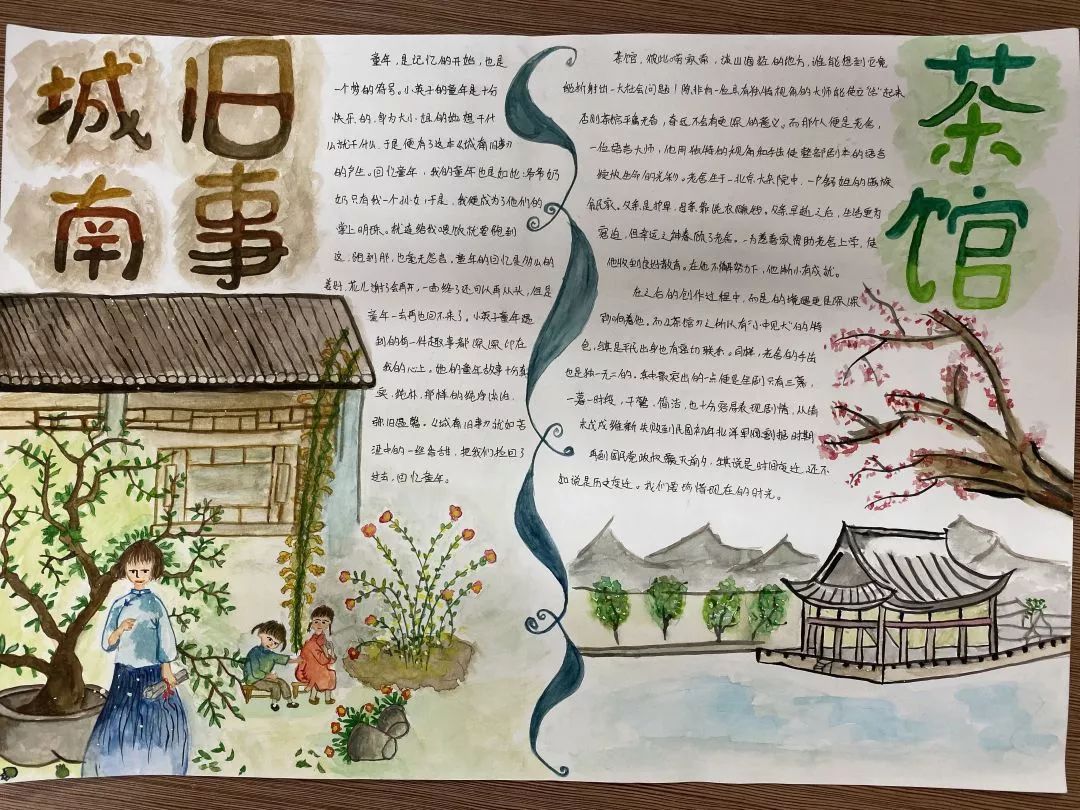 城南
旧事
童年,是记忆的开始,也是
一个梦的符号。小英子的童年是十分
快乐的,身为大小姐的她想干什
么就干什么,于是便有了这本《城南旧事》
的产生。回忆童年,我的童年也是如此:爷爷奶
奶只有我一个孙女,于是,我便成为了他们的
掌上明珠。就连给我喂饭就要跑到
这,跑到那,也毫无怨言。童年的回忆是那么的
美好,花儿谢了会再开,一曲终了还可以再从头,但是
童年一去再也回不来了。小英子童年遇
到的每一件趣事都深深印在
我的心上。她的童年故事十分真
实,纯朴,那样的纯净淡泊,
弥旧温馨。《城南旧事》就如苦
涩中的一丝香甜,把我们拉回了
过去,回忆童年。
茶馆
茶馆,彼此喝茶,谈山海经的地方,谁能想到它竟
能折射出一大社会问题!除非有一位具有独特视角的大师能使它“活”起来
否则茶馆平庸无奇,春远不会有更深的意义。而那个人便是老舍,
一位语言大师,他用独特的视角和手法使整部剧本的语言
绽放生命的光彩。老舍生于一北京大杂院中,一户舒姓的满族
贫民家。父亲是护军,母亲靠洗衣赚钱。父亲早逝之后,生活更为
窘迫,但幸运之神眷顾了老舍。一为慈善家资助老舍上学,使
他收到良好教育。在他不懈努力下,他渐小有成就。
在之后的创作过程中,而是的境遇更是深深
影响着他。而《茶馆》之所以有“小中见大”的特
色,与其平民出身也有密切联系。同样,老舍的手法
也是独一无二的。其中最突出的一点便是全剧只有三幕,
一幕一时段,干警,简洁,也十分容易表现剧情,从清
末戊戌维新失败到民国初年北洋军阀割据时期
再到国民党政权覆灭前夕,与其说是时间变迁,还不
如说是历史变迁。我们要珍惜现在的时光。